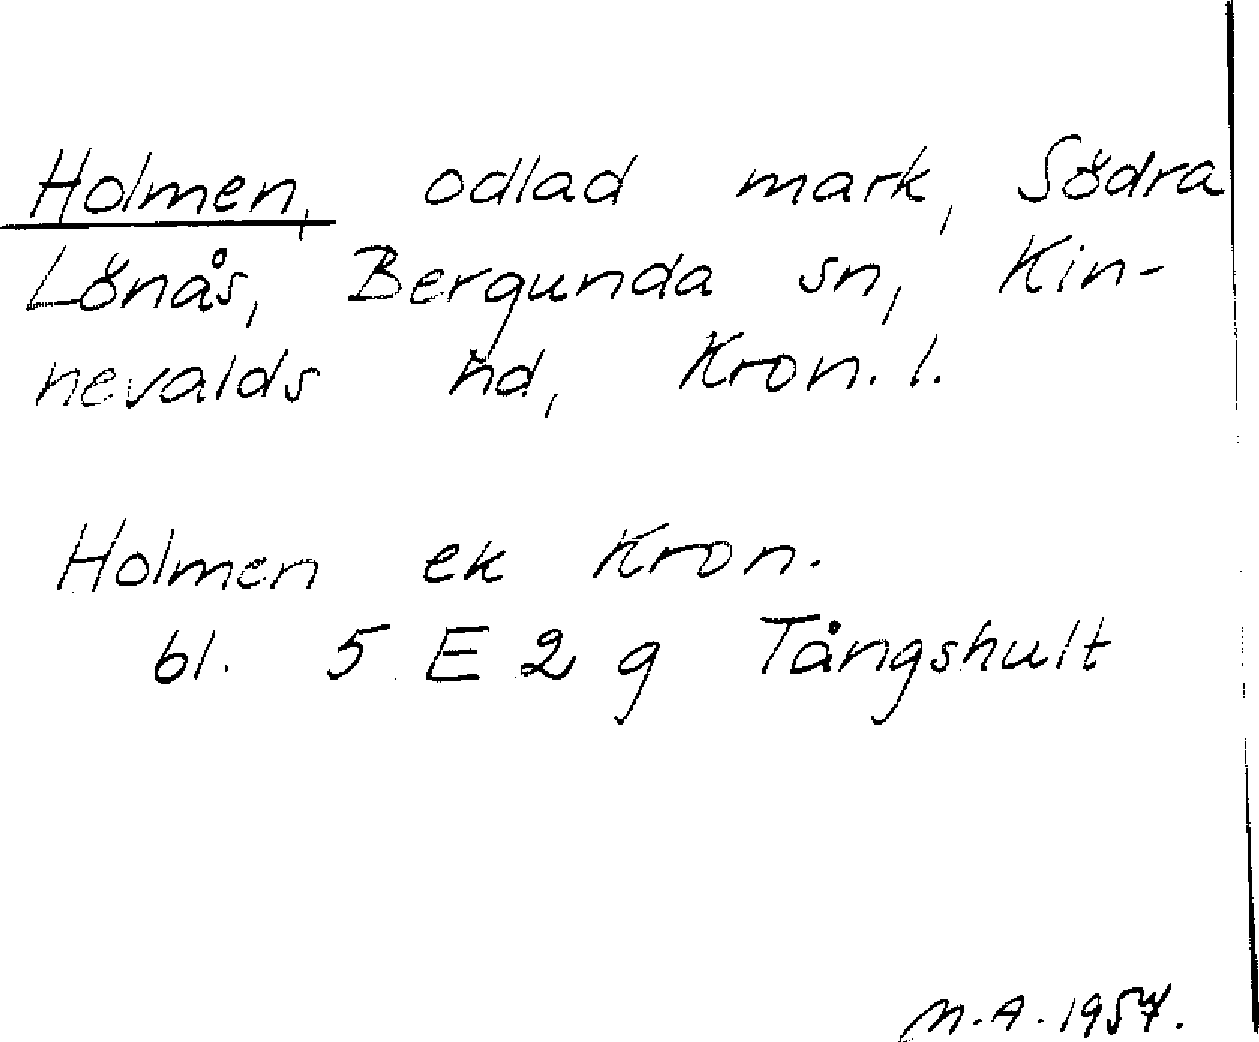 Holmen, odlad mark, Södra
Lönås, Bergunda sn, Kin-
nevalds hd, Kron. l.
Holmen ek Kron.
bl. 5 E 2 g Tångshult
M.A. 1957.